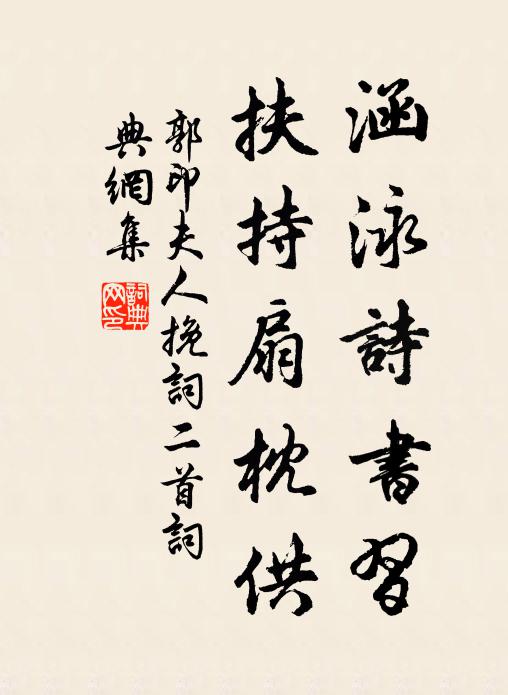 涵泳詩書習
扶持扇枕供
郭印夫人挽詞二首詞
典網集
詞典
网印